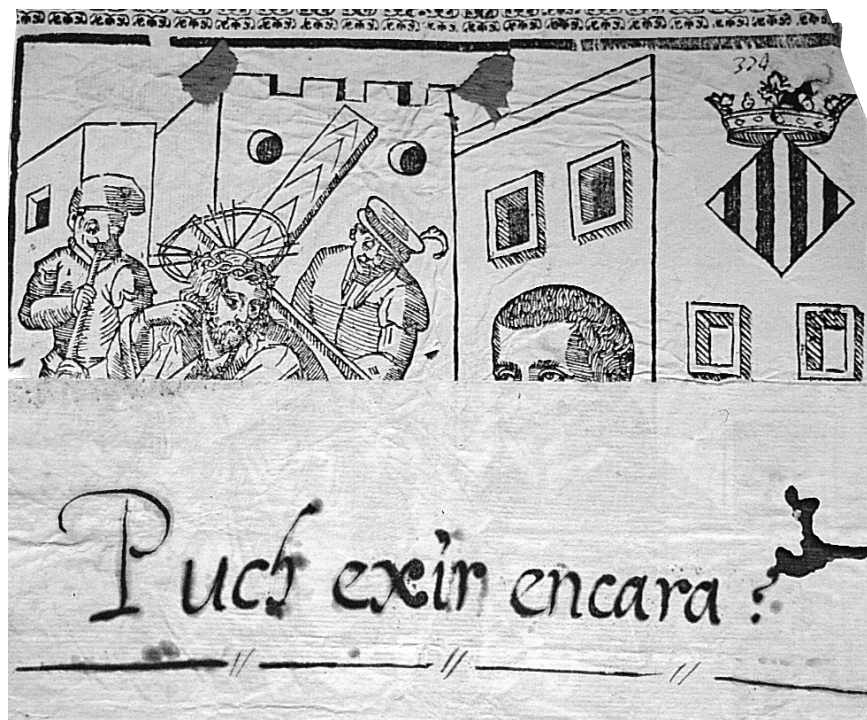 324
Puch exir encara ?